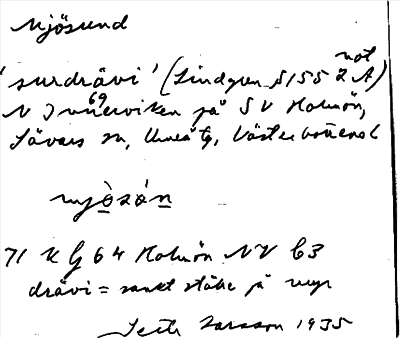 Mjösund
'surdrävi' (Lindgren s 155 not 2 A)
N Innerviken på SV Holmön,
Sävars sn, Umeå tg, Västerbottens l
mjòsón
71 K G 64 Holmön NV C3
drävi = sankt ställe på myr
Larsson 1935